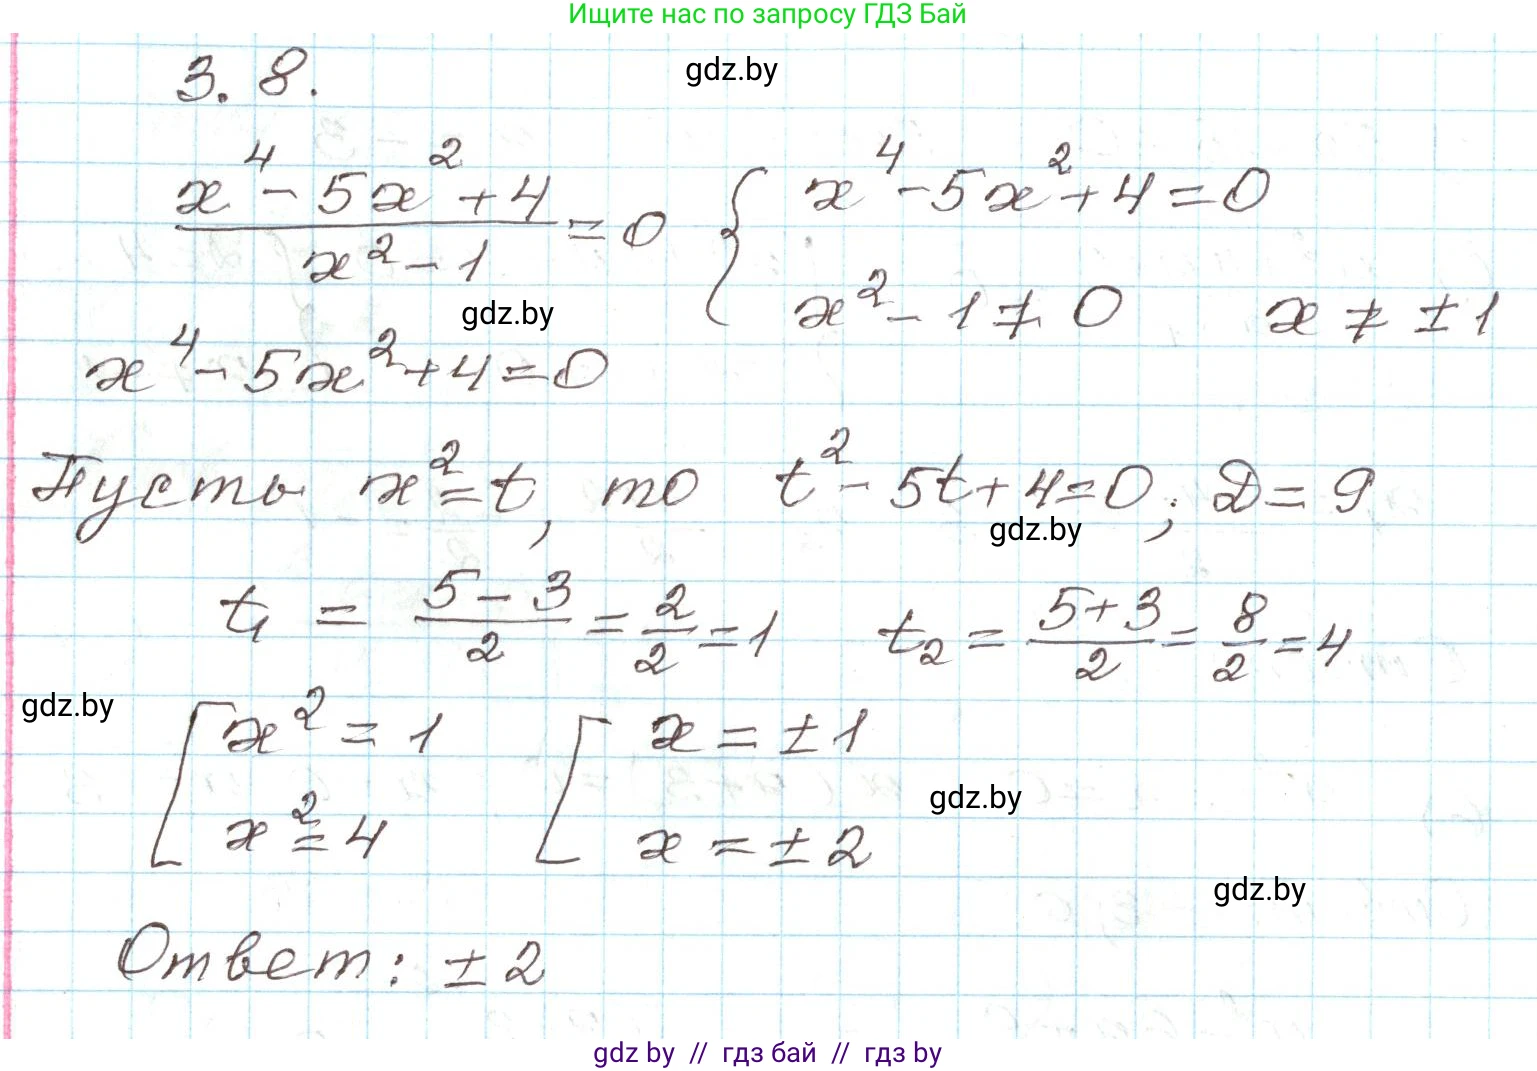 Ищите нас по запросу ГДЗ Бай
3.8.
gdz.by
(x⁴ - 5x² + 4)/(x² - 1) = 0 { x⁴ - 5x² + 4 = 0
x² - 1 ≠ 0 x ≠ ±1
gdz.by
x⁴ - 5x² + 4 = 0
Пусть x² = t, то t² - 5t + 4 = 0; D = 9
gdz.by
t₁ = (5 - 3)/2 = 2/2 = 1 t₂ = (5 + 3)/2 = 8/2 = 4
gdz.by
[ x² = 1 [ x = ±1
gdz.by
x² = 4 x = ±2
gdz.by
Ответ: ±2
gdz by // гдз бай // гдз by